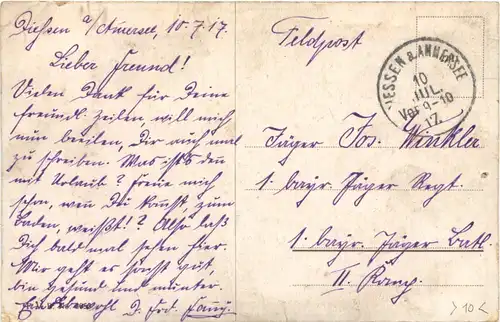 Diessen a/Ammersee 10.7.17.
Lieber Freund!
Vielen Dank für Deine
freundl. Zeilen, will mich
nun beeilen, Dir auch mal
zu schreiben. Was ist's den
mit Urlaub? Freue mich
schon, wen Du komst zum
Baden, weißt!? Also laß
Dich bald mal sehen hier.
Mir geht es sonst gut,
bin gesund und munter.
Lebewohl D. Frd.
Feldpost
DIESSEN A. AMMERSEE
10
JUL.
Vor 9-10
17
Jäger Jos. Winkler
1. bayr. Jäger Regt.
1. bayr. Jäger Batl.
II. Komp.
>10<